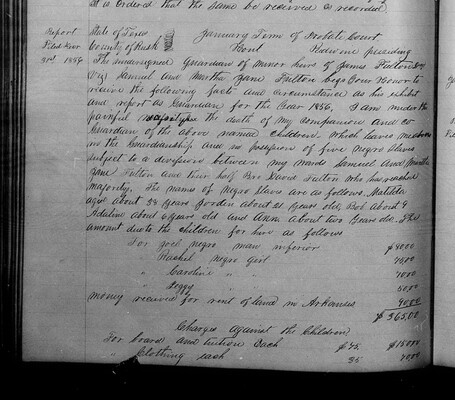 it is Ordered that the same be received & recorded.
Report
Filed
31st 1856
State of Texas
County of Rusk
January Term of Probate Court
presiding
The undersigned Guardian of minor heirs of James Fulton
Viz Samuel and Martha Jane Fulton begs your Honor to
receive the following facts and circumstances as his exhibit
and report as Guardian for the Year 1856, I am under the
painful the death of my companion and co
Guardian of the above named children which leaves me alone
in the Guardianship and in possession of five Negro slaves
subject to a division between my wards Samuel and Martha
Jane Fulton and their half Bro David Fulton who has reached
majority. The names of Negro Slaves are as follows. Matilda
aged about 38 years Jordin about 21 years old, Bob about 9
Adaline about 6 years old and Ann about two years old. The
amount due to the children for hire as follows
For Joel negro man inferior $90.00
" Rachel negro girl
" Caroline " " 70.00
" Peggy " 50.00
money received for rent of land in Arkansas 90.00
$365.00
Charges against the Children
For board and tuition Each $75. $150.00
" Clothing each 35 70.00